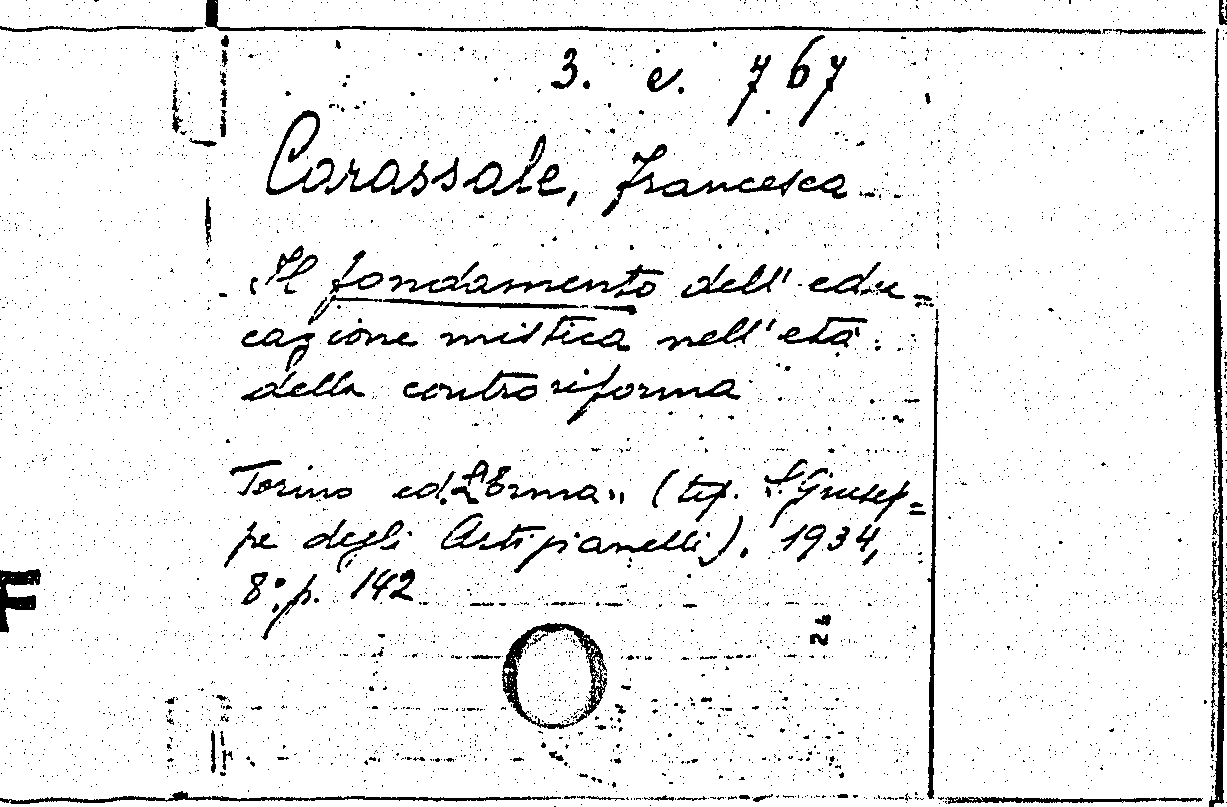 3. e. 767
Carassale, Francesca
Il fondamento dell'edu=
cazione mistica nell'età
della controriforma
Torino ed. "L'Erma" (tip. S. Giusep=
pe degli Artigianelli). 1934,
8°, p. 142
24
F